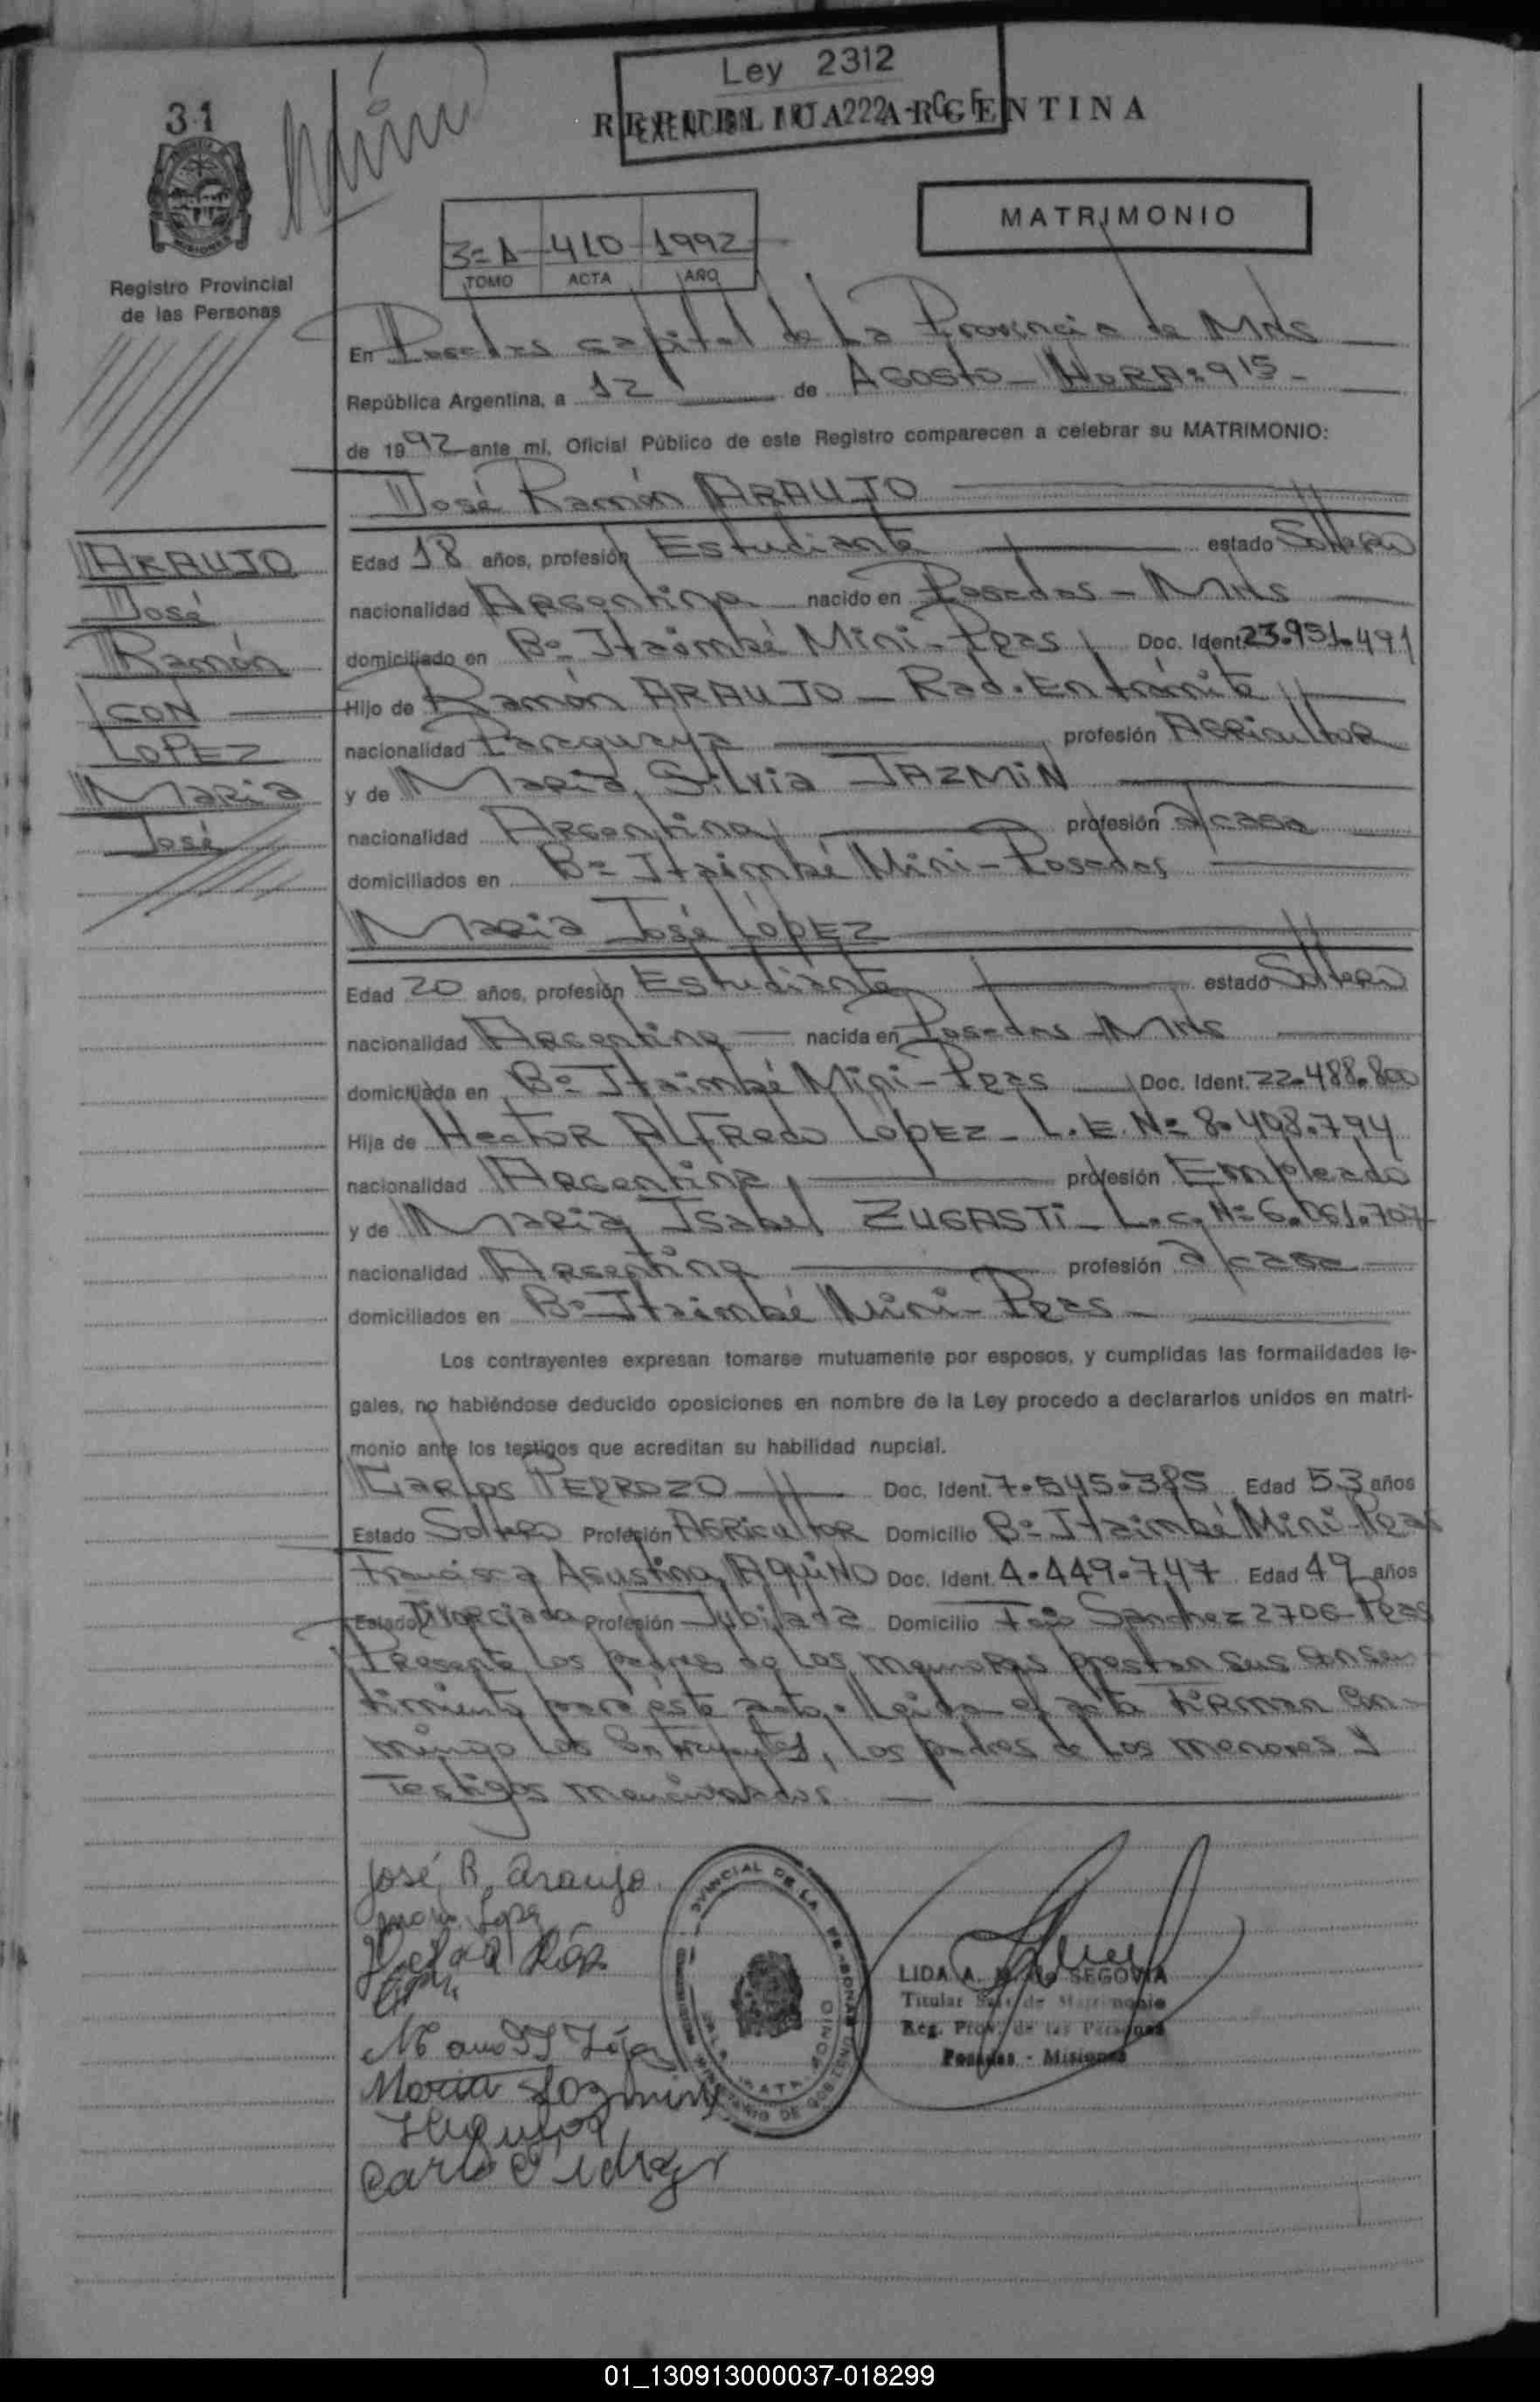 Ley 2312
REPUBLICA ARGENTINA
31
MATRIMONIO
3=A 410 1992
TOMO ACTA AÑO
Registro Provincial
de las Personas
En Posadas capital de La Provincia de Mnes
República Argentina, a 12 de Agosto - HORA: 9 15 -
de 1992 ante mi, Oficial Público de este Registro comparecen a celebrar su MATRIMONIO:
José Ramón ARAUJO
ARAUJO
José
Ramón
CON
LOPEZ
Maria
José
Edad 18 años, profesión Estudiante estado Soltero
nacionalidad Argentina nacido en Posadas - Mnes
domiciliado en Bº Itaimbé Mini - Pdas Doc. Ident. 23.951.491
Hijo de Ramón ARAUJO - Rad. En trámite
nacionalidad Paraguaya profesión Agricultor
y de Maria Silvia JAZMIN
nacionalidad Argentina profesión a/casa
domiciliados en Bº Itaimbé Mini - Posadas
Maria José López
Edad 20 años, profesión Estudiante estado Soltero
nacionalidad Argentina nacida en Posadas - Mnes
domiciliada en Bº Itaimbé Mini - Pdas Doc. Ident. 22.488.800
Hija de Hector Alfredo Lopez - L.E. Nº 8.408.794
nacionalidad Argentina profesión Empleado
y de Maria Isabel ZUGASTI - L.C. Nº 6.061.707
nacionalidad Argentina profesión a/casa
domiciliados en Bº Itaimbé Mini - Pdas -
Los contrayentes expresan tomarse mutuamente por esposos, y cumplidas las formalidades le-
gales, no habiéndose deducido oposiciones en nombre de la Ley procedo a declararlos unidos en matri-
monio ante los testigos que acreditan su habilidad nupcial.
Carlos PEDROZO Doc. Ident. 7.545.385 Edad 53 años
Estado Soltero Profesión Agricultor Domicilio Bº Itaimbé Mini - Pdas
Francisca Agustina AQUINO Doc. Ident. 4.449.747 Edad 49 años
Estado Divorciada Profesión Jubilada Domicilio Fcio Sanchez 2706 Pdas
Presente los padres de los menores prestan sus consen
timiento para éste acto. Leida el acta firman con-
migo los contrayentes, los padres de los menores y
Testigos mencionados.
José R. Araujo
Maria Jazmin
LIDA A. SEGOVIA
Titular de Matrimonio
Reg. Prov. de las Personas
Posadas - Misiones
01_130913000037-018299